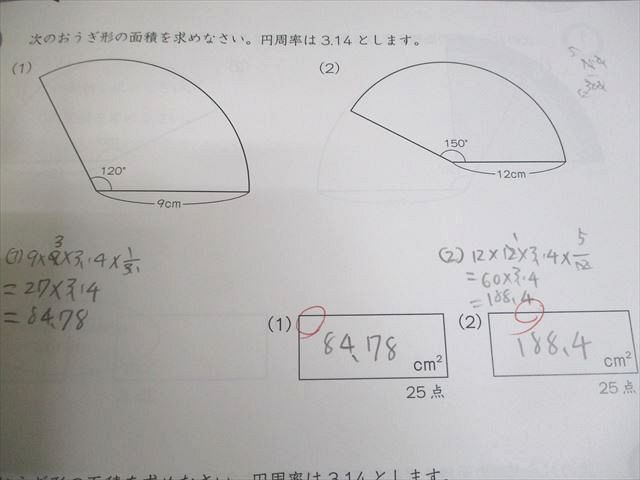 次のおうぎ形の面積を求めなさい。円周率は3.14とします。
(1)
(2)
120°
9cm
150°
12cm
(1) 9×9×3.14×1/3
= 27×3.14
= 84.78
(2) 12×12×3.14×5/12
= 60×3.14
= 188.4
(1) 84.78 cm²
25点
(2) 188.4 cm²
25点
形の面積を求めなさい。円周率は3.14とします。